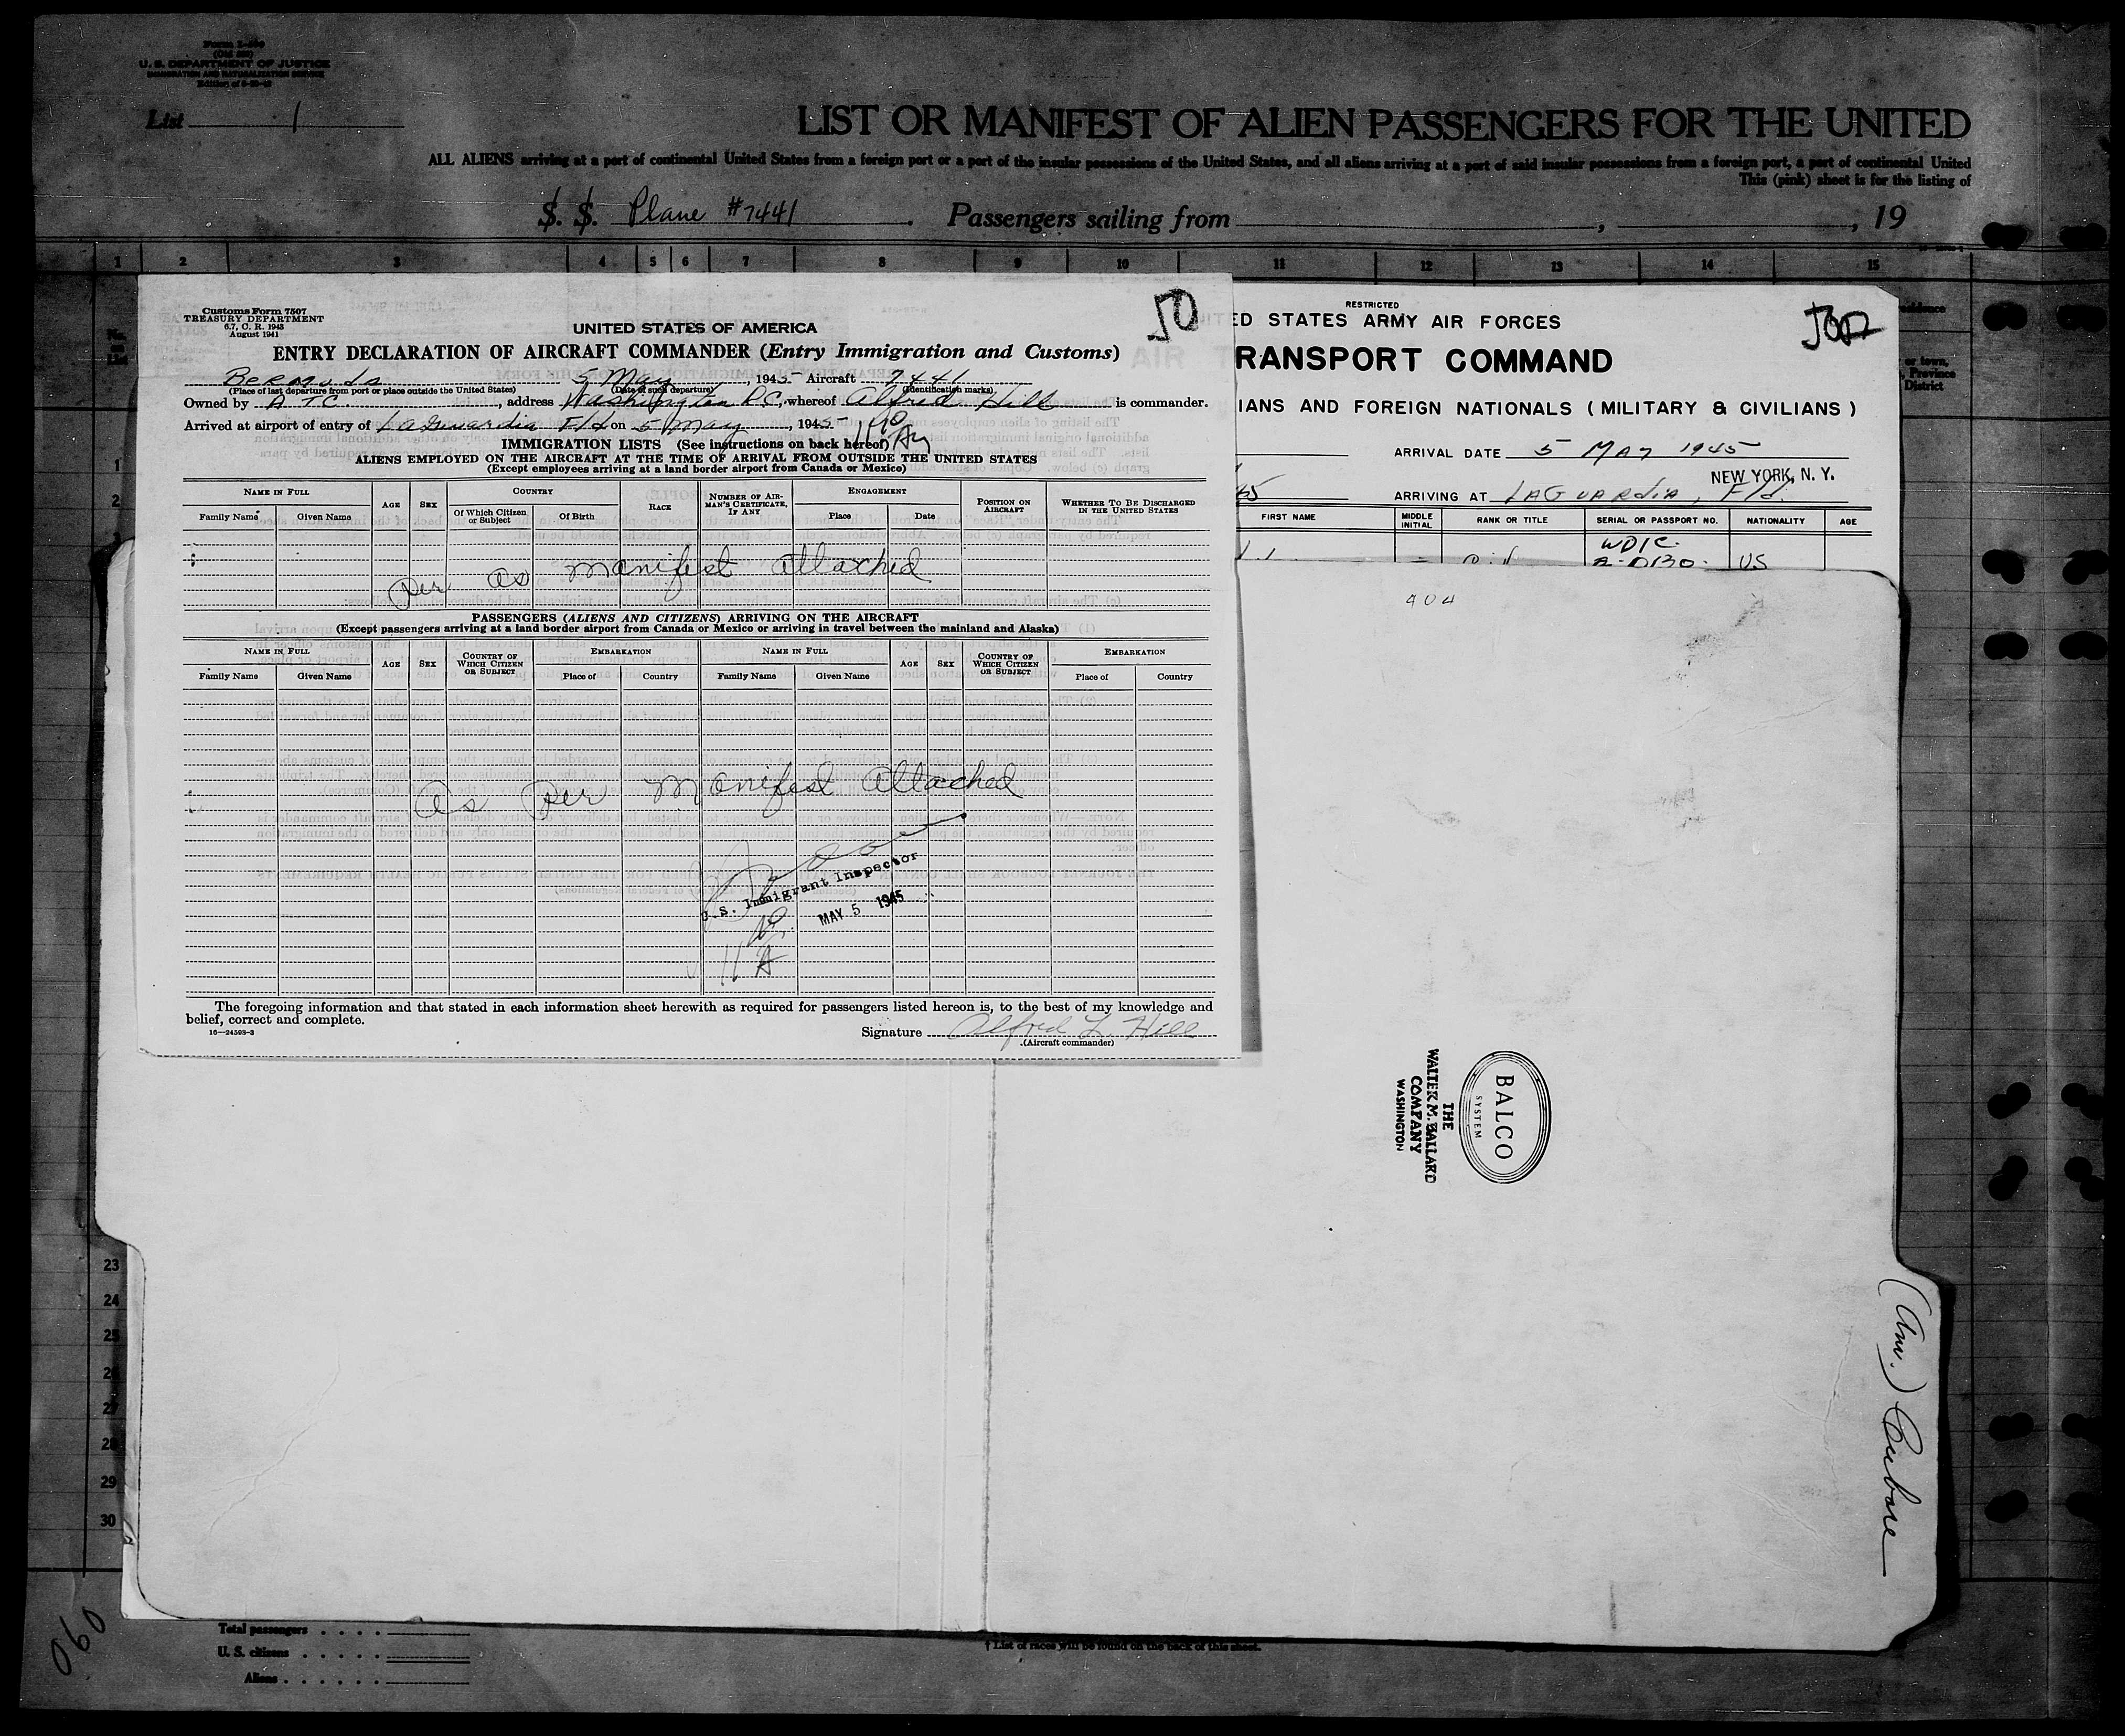 U. S. DEPARTMENT OF JUSTICE
IMMIGRATION AND NATURALIZATION SERVICE
List 1
LIST OR MANIFEST OF ALIEN PASSENGERS FOR THE UNITED
ALL ALIENS arriving at a port of continental United States from a foreign port or a port of the insular possessions of the United States, and all aliens arriving at a port of said insular possessions from a foreign port, a port of continental United
This (pink) sheet is for the listing of
S. S. Plane #7441 Passengers sailing from , , 19
1 2 3 4 5 6 7 8 9 10 11 12 13 14 15
Customs Form 7507
TREASURY DEPARTMENT
6.7, C. R. 1943
August 1941
50
UNITED STATES OF AMERICA
ENTRY DECLARATION OF AIRCRAFT COMMANDER (Entry Immigration and Customs)
Bermuda 5 May, 1945 Aircraft 7441
(Place of last departure from port or place outside the United States) (Date of such departure) (Identification marks)
Owned by A T C, address Washington D.C., whereof Alfred Hill is commander.
Arrived at airport of entry of LaGuardia Fld on 5 May, 1945
IMMIGRATION LISTS (See instructions on back hereof)
ALIENS EMPLOYED ON THE AIRCRAFT AT THE TIME OF ARRIVAL FROM OUTSIDE THE UNITED STATES
(Except employees arriving at a land border airport from Canada or Mexico)
NAME IN FULL AGE SEX COUNTRY RACE NUMBER OF AIRMAN'S CERTIFICATE, IF ANY ENGAGEMENT POSITION ON AIRCRAFT WHETHER TO BE DISCHARGED IN THE UNITED STATES
Family Name Given Name Of Which Citizen or Subject Of Birth Place Date
per as manifest attached
PASSENGERS (ALIENS AND CITIZENS) ARRIVING ON THE AIRCRAFT
(Except passengers arriving at a land border airport from Canada or Mexico or arriving in travel between the mainland and Alaska)
NAME IN FULL AGE SEX COUNTRY OF WHICH CITIZEN OR SUBJECT EMBARKATION NAME IN FULL AGE SEX COUNTRY OF WHICH CITIZEN OR SUBJECT EMBARKATION
Family Name Given Name Place of Country Family Name Given Name Place of Country
As per Manifest Attached
U.S. Immigrant Inspector
MAY 5 1945
The foregoing information and that stated in each information sheet herewith as required for passengers listed hereon is, to the best of my knowledge and
belief, correct and complete.
16—24598-3
Signature Alfred L. Hill
(Aircraft commander)
RESTRICTED
ED STATES ARMY AIR FORCES
RANSPORT COMMAND
IANS AND FOREIGN NATIONALS ( MILITARY & CIVILIANS )
ARRIVAL DATE 5 MAY 1945
NEW YORK, N. Y.
ARRIVING AT LAGUARDIA, Fld.
FIRST NAME MIDDLE INITIAL RANK OR TITLE SERIAL OR PASSPORT NO. NATIONALITY AGE
US
904
BALCO
SYSTEM
THE
WALTER M. BALLARD
COMPANY
WASHINGTON
23
24
25
26
27
28
29
30
Total passengers
U. S. citizens
Aliens
† List of races will be found on the back of this sheet.